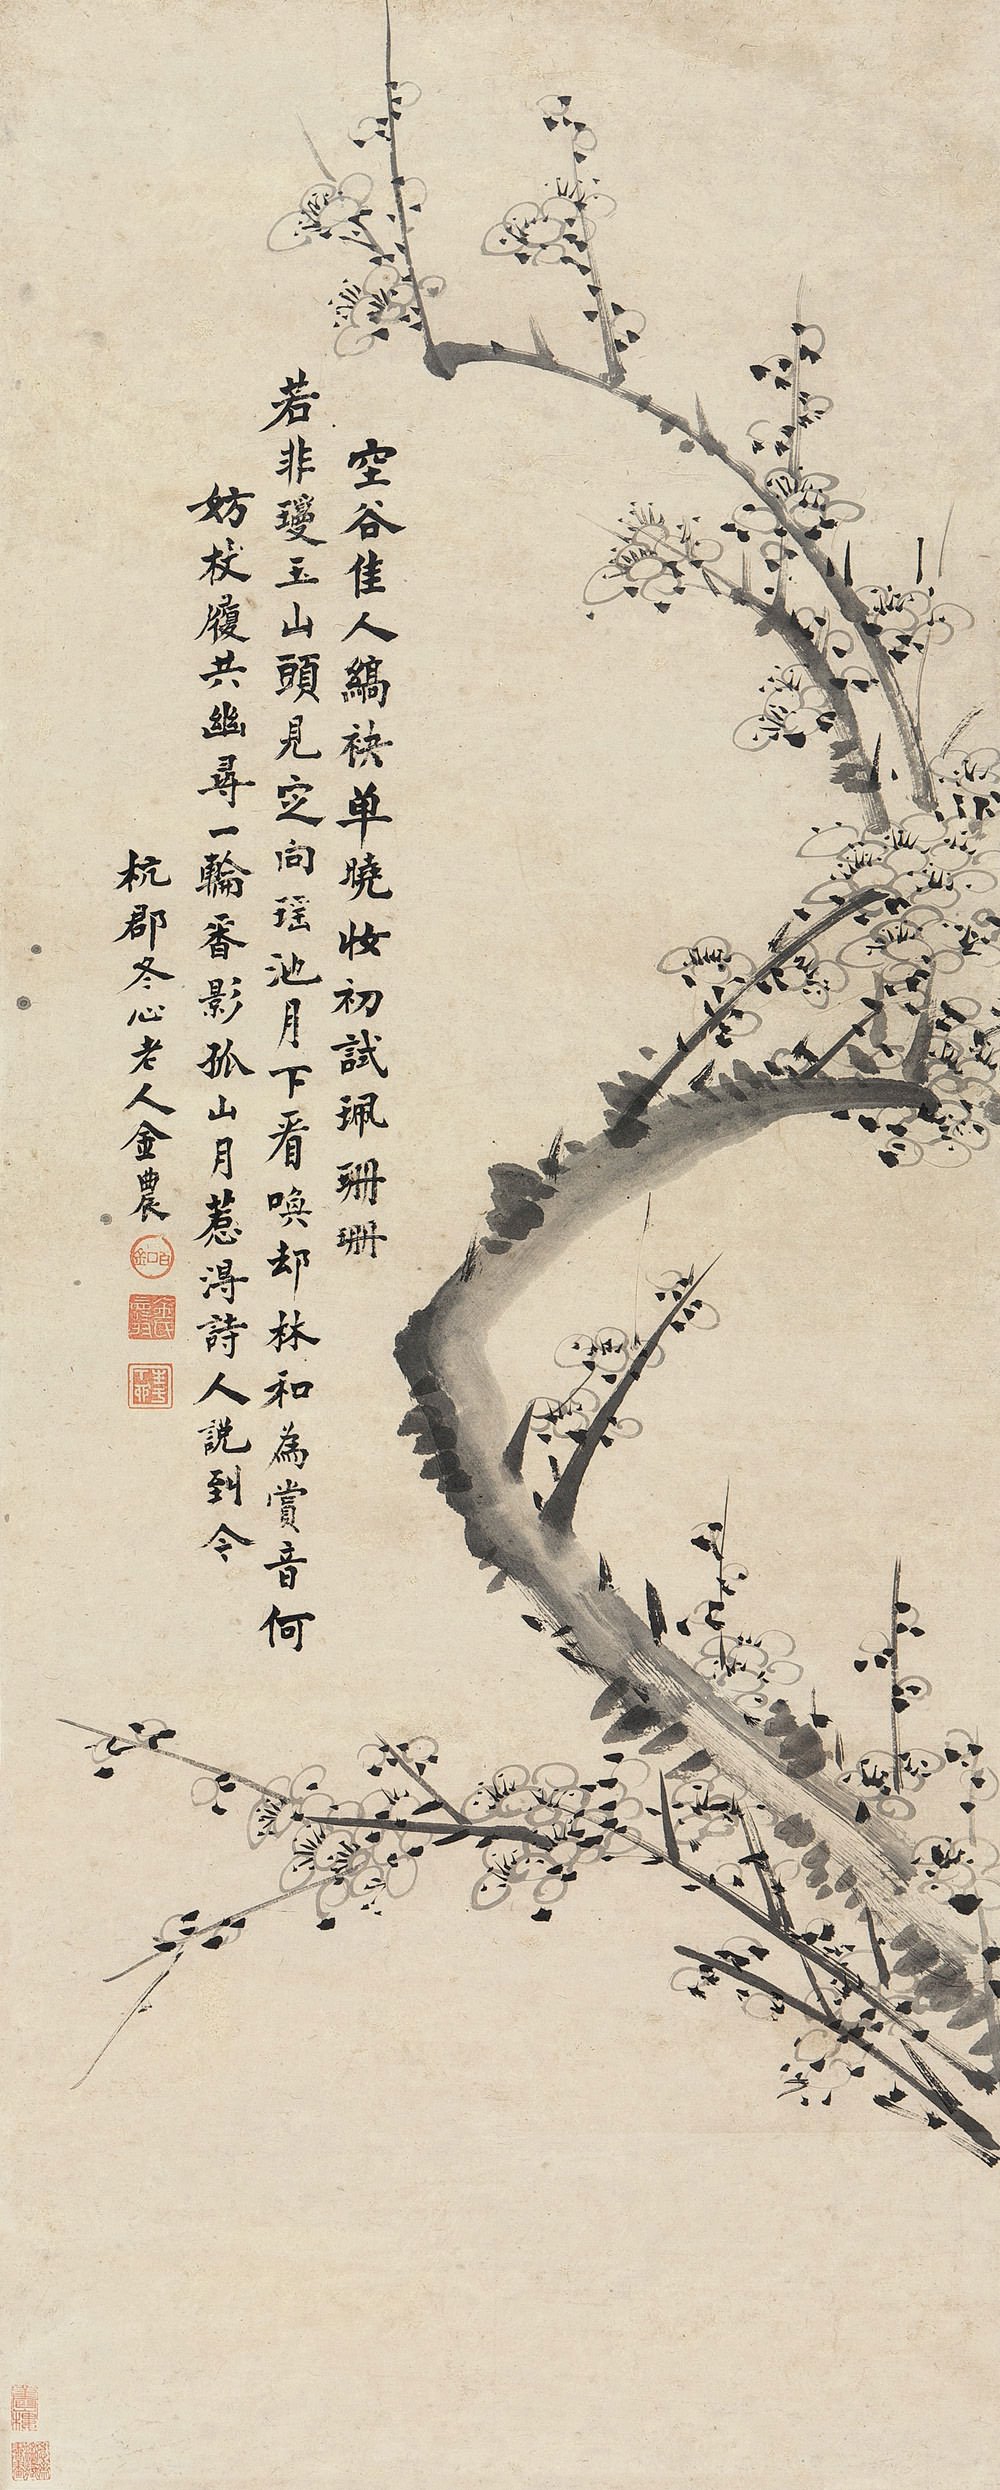 空谷佳人縞袂单曉妝初試珮珊珊
若非璦玉山頭見定向瑶池月下看喚却林和為賞音何
妨杖履共幽尋一輪香影孤山月惹得詩人説到今
杭郡冬心老人金農
金氏壽門